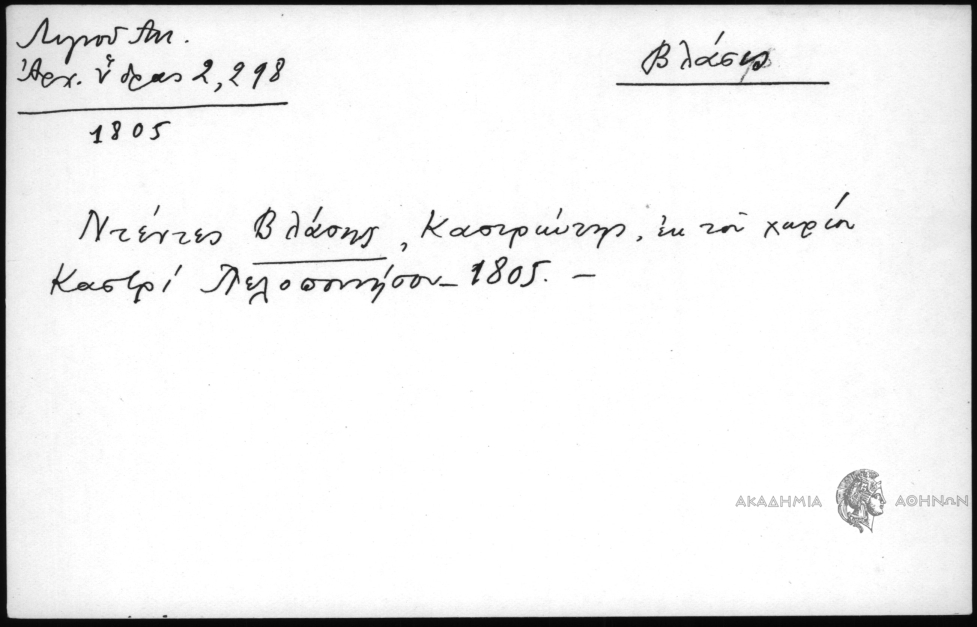 Λιγνού Αν.
Ἀρχ. Ὕδρας 2, 298
1805
Βλάσης
Ντέντες Βλάσης, Καστριώτης, ἐκ τοῦ χωρίου
Καστρί Πελοποννήσου – 1805. –
ΑΚΑΔΗΜΙΑ ΑΘΗΝΩΝ